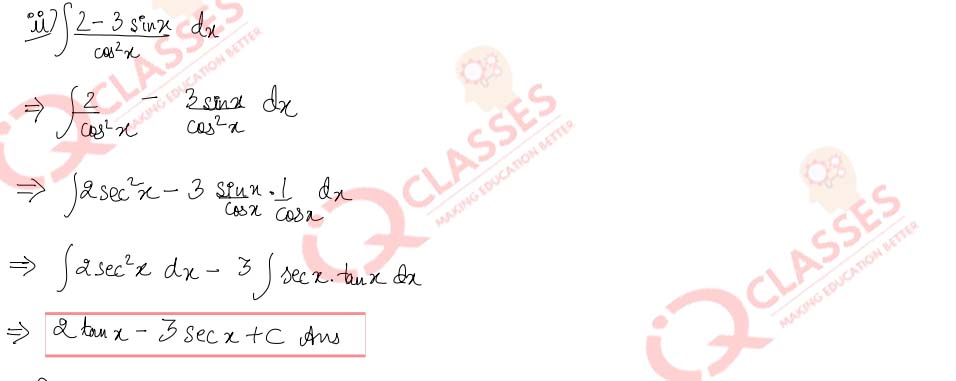 ii) ∫ (2 - 3 sinx)/cos²x dx
⇒ ∫ 2/cos²x - 3 sinx/cos²x dx
⇒ ∫ 2sec²x - 3 sinx/cosx · 1/cosx dx
⇒ ∫ 2sec²x dx - 3 ∫ secx.tanx dx
⇒ 2tanx - 3secx + C Ans
IQ CLASSES
MAKING EDUCATION BETTER
IQ CLASSES
MAKING EDUCATION BETTER
IQ CLASSES
MAKING EDUCATION BETTER